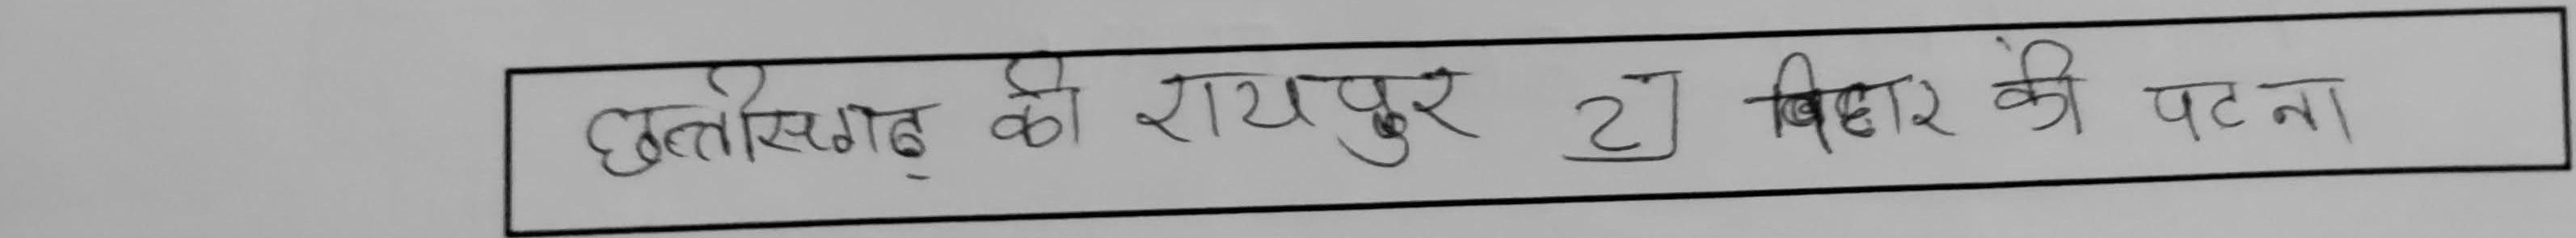 छत्तीसगढ़ की रायपुर 2] बिहार की पटना